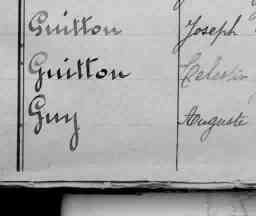 Guitton Joseph
Guitton Celestin
Guy Auguste